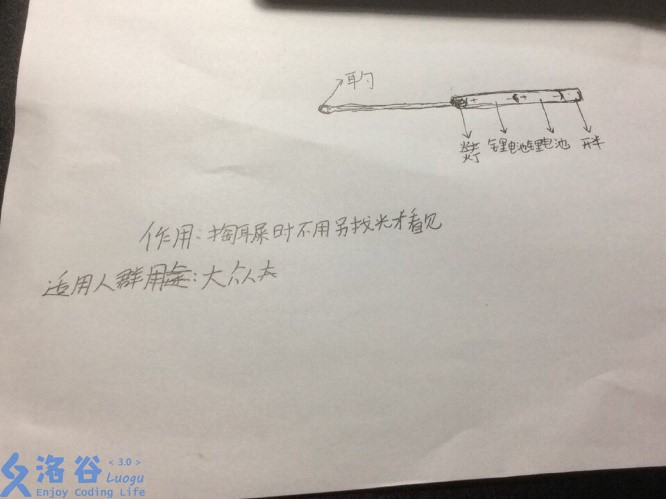 耳勺
+ - + -
灯 锂电池 锂电池 开关
作用:掏耳屎时不用另找光才看见
适用人群用途:大众人太
洛谷 <3.0> Luogu
Enjoy Coding Life